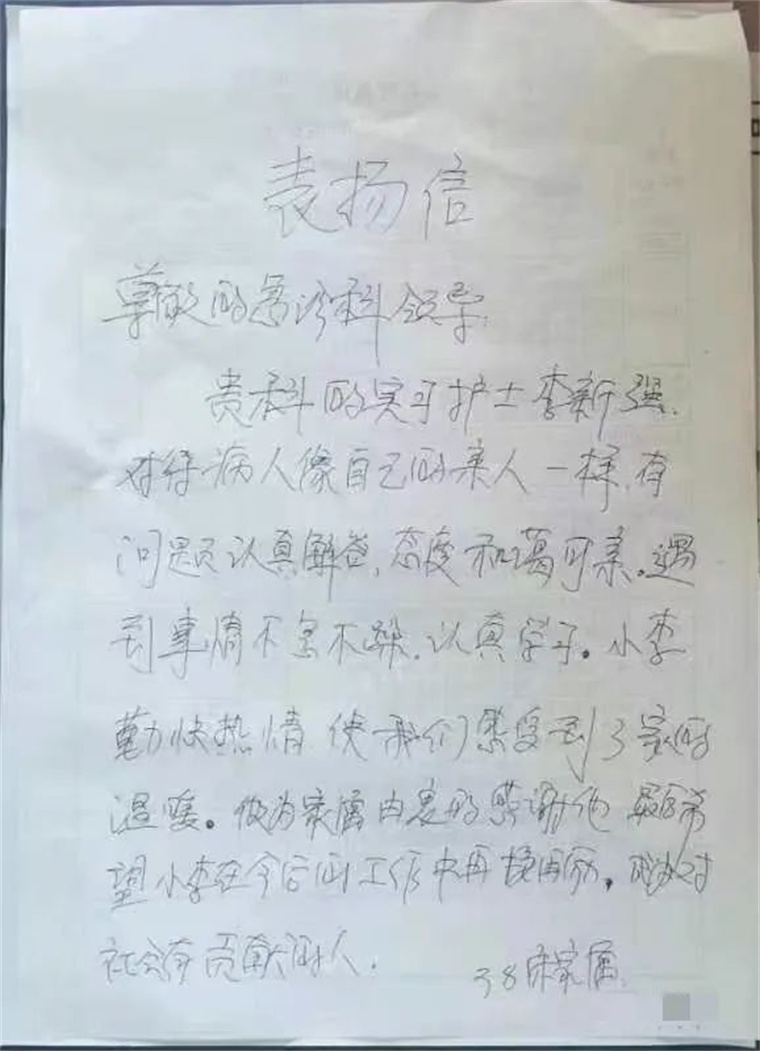 表扬信
尊敬的急诊科领导:
贵科的实习护士李新强,
对待病人像自己的亲人一样,有
问题认真解答,态度和蔼可亲。遇
到事情不急不躁,认真学习。小李
勤快热情 使我们感受到了家的
温暖。做为家属由衷的感谢他 最后希
望小李在今后的工作中再接再励,成为对
社会有贡献的人.
38床家属.